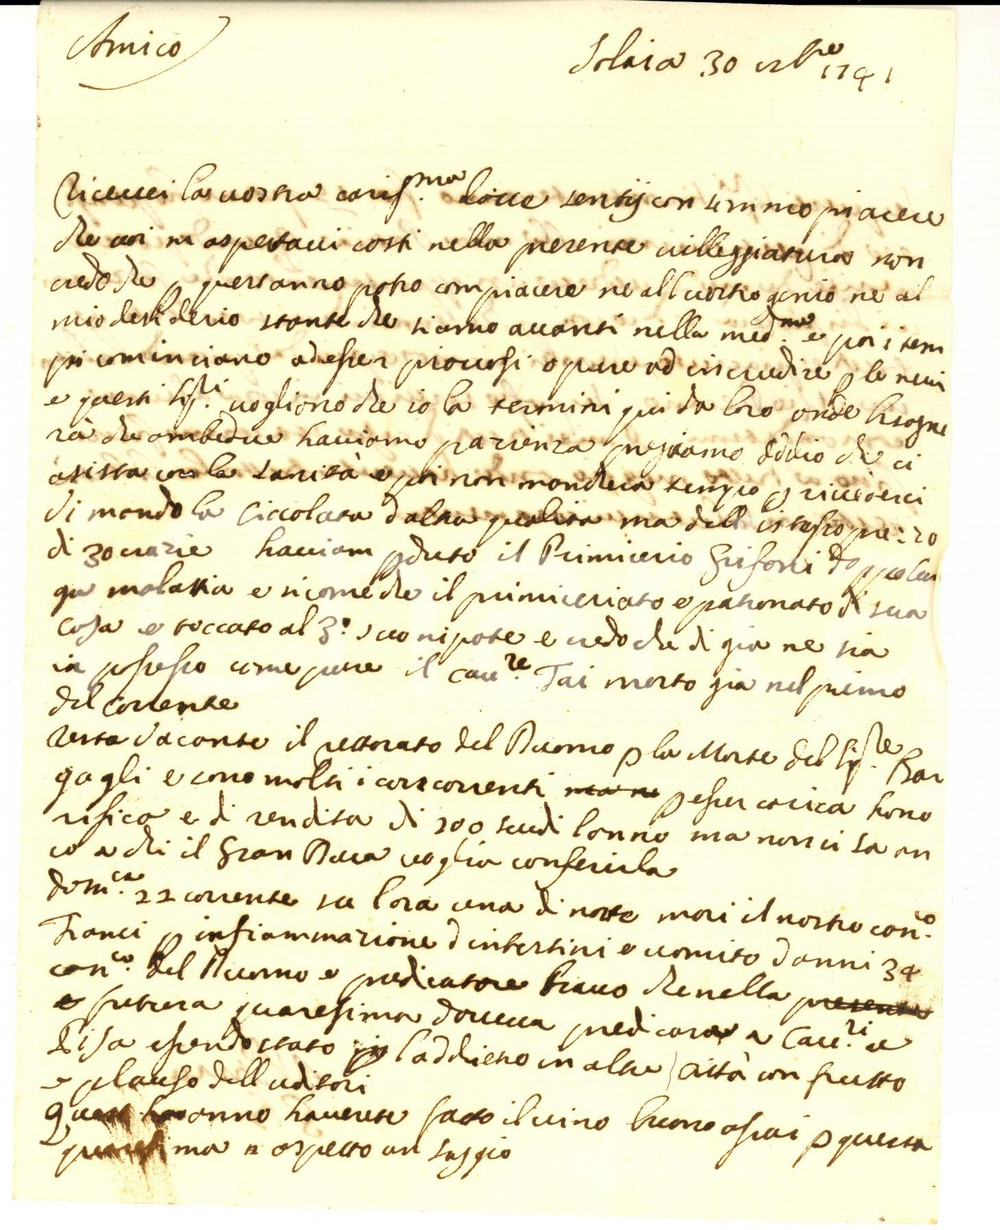 Amico
Solaia 30 xbre 1741
Ricevei la vostra caris.ma dove sentij con sommo piacere
che voi m aspettavi costi nella presente villeggiatura non
credo che p quest anno potro compiacere ne all vostro genio ne al
mio desiderio stante che siamo avanti nella med.ma e poi i tem
pi cominciano ad esser piovosi opure ad incrudire p le nevi
e questi Sig.ri vogliono che io la termini qui da loro onde bisogne
rà che ambedue haviamo pazienza preghiamo Iddio che ci
asista con la sanità e poi non mancherà tempo p rivederci
Vi mando la Ciccolata d altra qualita ma dell istesso prezzo
di 30 crazie haviam pduto il Primicerio Grifoni doppo lun
ga malattia e sicome che il primiceriato e patronato di sua
casa e toccato al 3.o suo nipote e credo che di gia ne sia
in posseso come pure il Cav.re Tai morto gia nel primo
del corrente
resta Vacante il rettorato del Duomo p la Morte del Sig.re Bar
gagli e sono molti i concorrenti p esser carica hono
rifica e di rendita di 200 scudi lanno ma non si sa an
co a chi il Gran Duca voglia conferirla
dom.ca 22 corrente su lora una di notte mori il nostro can.co
Franci p infiammazione d intestini e vomito d anni 34
can.co del Duomo e predicatore bravo che nella presente
e futura quaresima doveva predicare a Cav.ri a
Pisa essendo stato p laddietro in altre Città con frutto
e plauso dell uditori
Quest anno haverete fatto il vino buono assai p questa
ma n aspetto un saggio